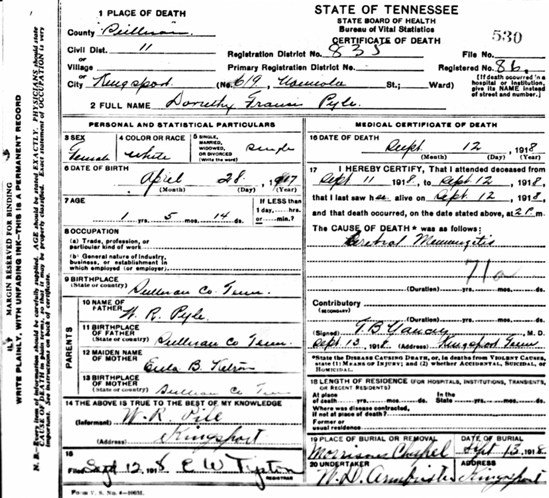 STATE OF TENNESSEE
STATE BOARD OF HEALTH
Bureau of Vital Statistics
CERTIFICATE OF DEATH
530
1 PLACE OF DEATH
County Sullivan
Civil Dist. 11
or
Village
or
City Kingsport
Registration District No. 835
File No.
Primary Registration District No.
Registered No. 86
(No. 619, St.; Ward)
[If death occurred in a hospital or institution, give its NAME instead of street and number.]
2 FULL NAME Dorothy Francis Pyle.
PERSONAL AND STATISTICAL PARTICULARS
3 SEX
Female
4 COLOR OR RACE
white
5 SINGLE, MARRIED, WIDOWED, OR DIVORCED
(Write the word)
Single
6 DATE OF BIRTH
April 28, 1917
(Month) (Day) (Year)
7 AGE
1 yrs. 5 mos. 14 ds.
If LESS than
1 day,....hrs.
or......min.?
8 OCCUPATION
(a) Trade, profession, or
particular kind of work
(b) General nature of industry,
business, or establishment in
which employed (or employer)
9 BIRTHPLACE
(State or country)
Sullivan Co Tenn.
PARENTS
10 NAME OF
FATHER
W. R. Pyle
11 BIRTHPLACE
OF FATHER
(State or country)
Sullivan Co Tenn.
12 MAIDEN NAME
OF MOTHER
Eula B.
13 BIRTHPLACE
OF MOTHER
(State or country)
Sullivan Co Tenn
14 THE ABOVE IS TRUE TO THE BEST OF MY KNOWLEDGE
(Informant) W. R. Pile
(Address) Kingsport
15
Filed Sept 12, 1918 E W Tipton
REGISTRAR
MEDICAL CERTIFICATE OF DEATH
16 DATE OF DEATH
Sept 12, 1918
(Month) (Day) (Year)
17 I HEREBY CERTIFY, That I attended deceased from
Sept 11 1918, to Sept 12, 1918
that I last saw her alive on Sept 12, 1918
and that death occurred, on the date stated above, at 2 P m.
The CAUSE OF DEATH* was as follows:
Cerebral Meningitis
71a
(Duration) yrs. mos. ds.
Contributory
(SECONDARY)
(Duration) yrs. mos. ds.
(Signed) T. B. Yancey, M. D.
Sept 13, 1918 (Address) Kingsport Tenn
*State the DISEASE CAUSING DEATH, or, in deaths from VIOLENT CAUSES, state (1) MEANS OF INJURY; and (2) whether ACCIDENTAL, SUICIDAL, or HOMICIDAL.
18 LENGTH OF RESIDENCE (FOR HOSPITALS, INSTITUTIONS, TRANSIENTS, OR RECENT RESIDENTS)
At place
of death yrs. mos. ds.
In the
State yrs. mos. ds.
Where was disease contracted,
if not at place of death?
Former or
usual residence
19 PLACE OF BURIAL OR REMOVAL
Morrison Chapel
DATE OF BURIAL
Sept 13, 1918
20 UNDERTAKER
W. D.
ADDRESS
Kingsport
MARGIN RESERVED FOR BINDING
WRITE PLAINLY, WITH UNFADING INK—THIS IS A PERMANENT RECORD